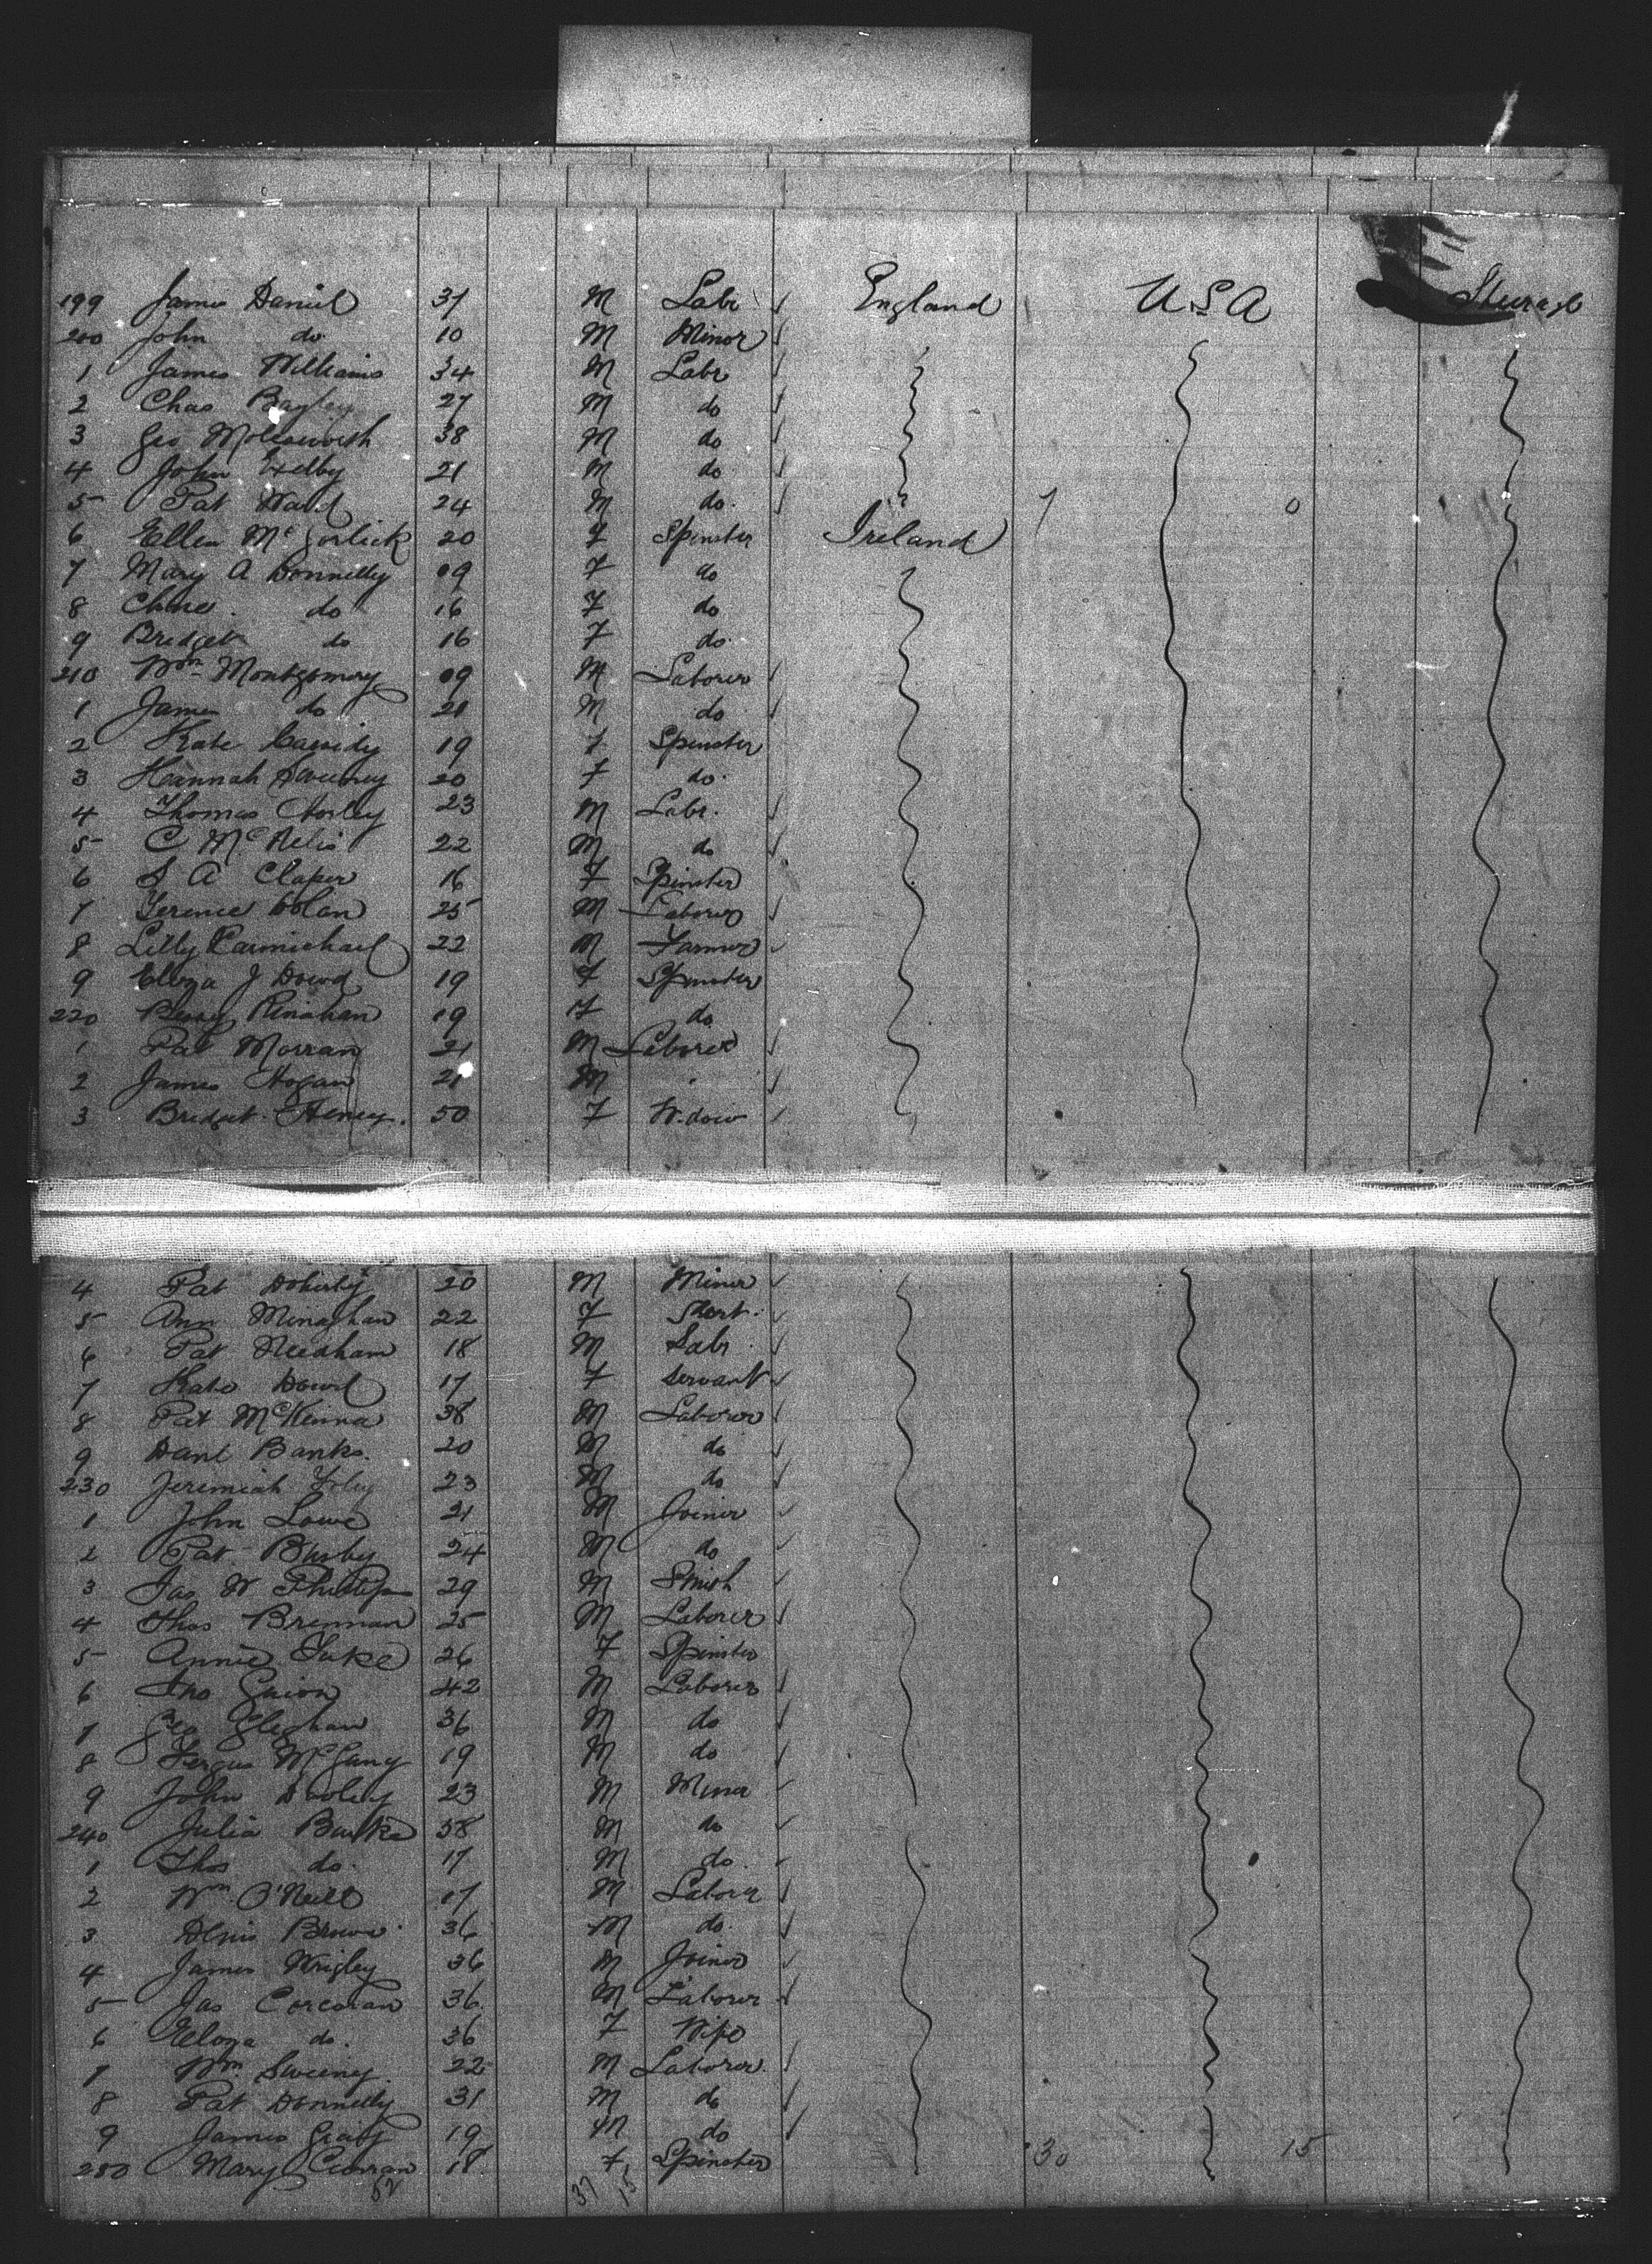 199 James Daniel 31 M Labr England USA
200 John do 10 M Minor
1 James Williams 34 M Labr
2 Chas Bagley 27 M do
3 Geo Molesworth 38 M do
4 John Exelby 21 M do
5 Pat Ward 24 M do. 7 0
6 Ellen McGorlick 20 F Spinster Ireland
7 Mary A Donnelly 09 F do
8 do 16 F do
9 Bridget do 16 F do.
210 Wm Montgomery 09 M Laborer
1 James do 21 M do
2 Kate Cassidy 19 F Spinster
3 Hannah Sweeney 20 F do.
4 Thomas 23 M Labr.
5 C McNelis 22 M do
6 S A Claper 16 F Spinster
7 Terence Dolan 25 M Laborer
8 Lilly Carmichael 22 M Farmer
9 Eliza J Dowd 19 F Spinster
220 Kinahan 19 F do
1 Pat Morran 21 M Laborer
2 James Hogan 21 M
3 Bridget Heney. 50 F Widow
4 Pat Doherty 20 M Miner
5 Ann Minaghan 22 F
6 Pat Needham 18 M Labr
7 Kate Dowd 17 F Servant
8 Pat McKenna 38 M Laborer
9 Danl Banks. 20 M do
230 Jeremiah Foley 23 M do
1 John Lowe 21 M Joiner
2 Pat Busby 24 M do
3 Jas W Phillips 29 M Smith
4 Thos Brennan 25 M Laborer
5 Annie 26 F Spinster
6 Jno 42 M Laborer
7 Geo 36 M do
8 Fergus 19 M do
9 John Dooley 23 M Miner
240 Julia 38 M do
1 Thos do. 17 M do.
2 Wm O'Neill 17 M Laborer
3 Denis Brown 36 M do.
4 James Wrigley 36 M Joiner
5 Jas Corcoran 36 M Laborer
6 Eliza do. 36 F Wife
7 Wm Sweeny 22 M Laborer.
8 Pat Donnelly 31 M do
9 James Craig 19 M do
250 Mary Curran 18 F Spinster 30 15
52 37 15